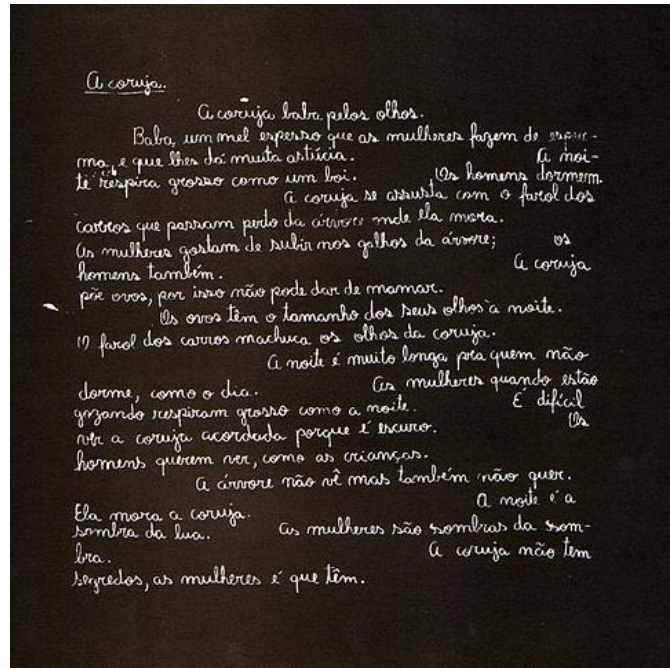 A coruja.
A coruja baba pelos olhos.
Baba, um mel espesso que as mulheres fazem de espu-
ma, e que lhes dá muita astúcia. A noi-
te respira grosso como um boi. Os homens dormem.
A coruja se assusta com o farol dos
carros que passam perto da árvore onde ela mora.
As mulheres gostam de subir nos galhos da árvore; os
homens também. A coruja
põe ovos, por isso não pode dar de mamar.
Os ovos têm o tamanho dos seus olhos à noite.
O farol dos carros machuca os olhos da coruja.
A noite é muito longa pra quem não
dorme, como o dia. As mulheres quando estão
gozando respiram grosso como a noite. É difícil
ver a coruja acordada porque é escuro. Os
homens querem ver, como as crianças.
A árvore não vê mas também não quer.
Ela mora a coruja. A noite é a
sombra da lua. As mulheres são sombras da som-
bra. A coruja não tem
segredos, as mulheres é que têm.